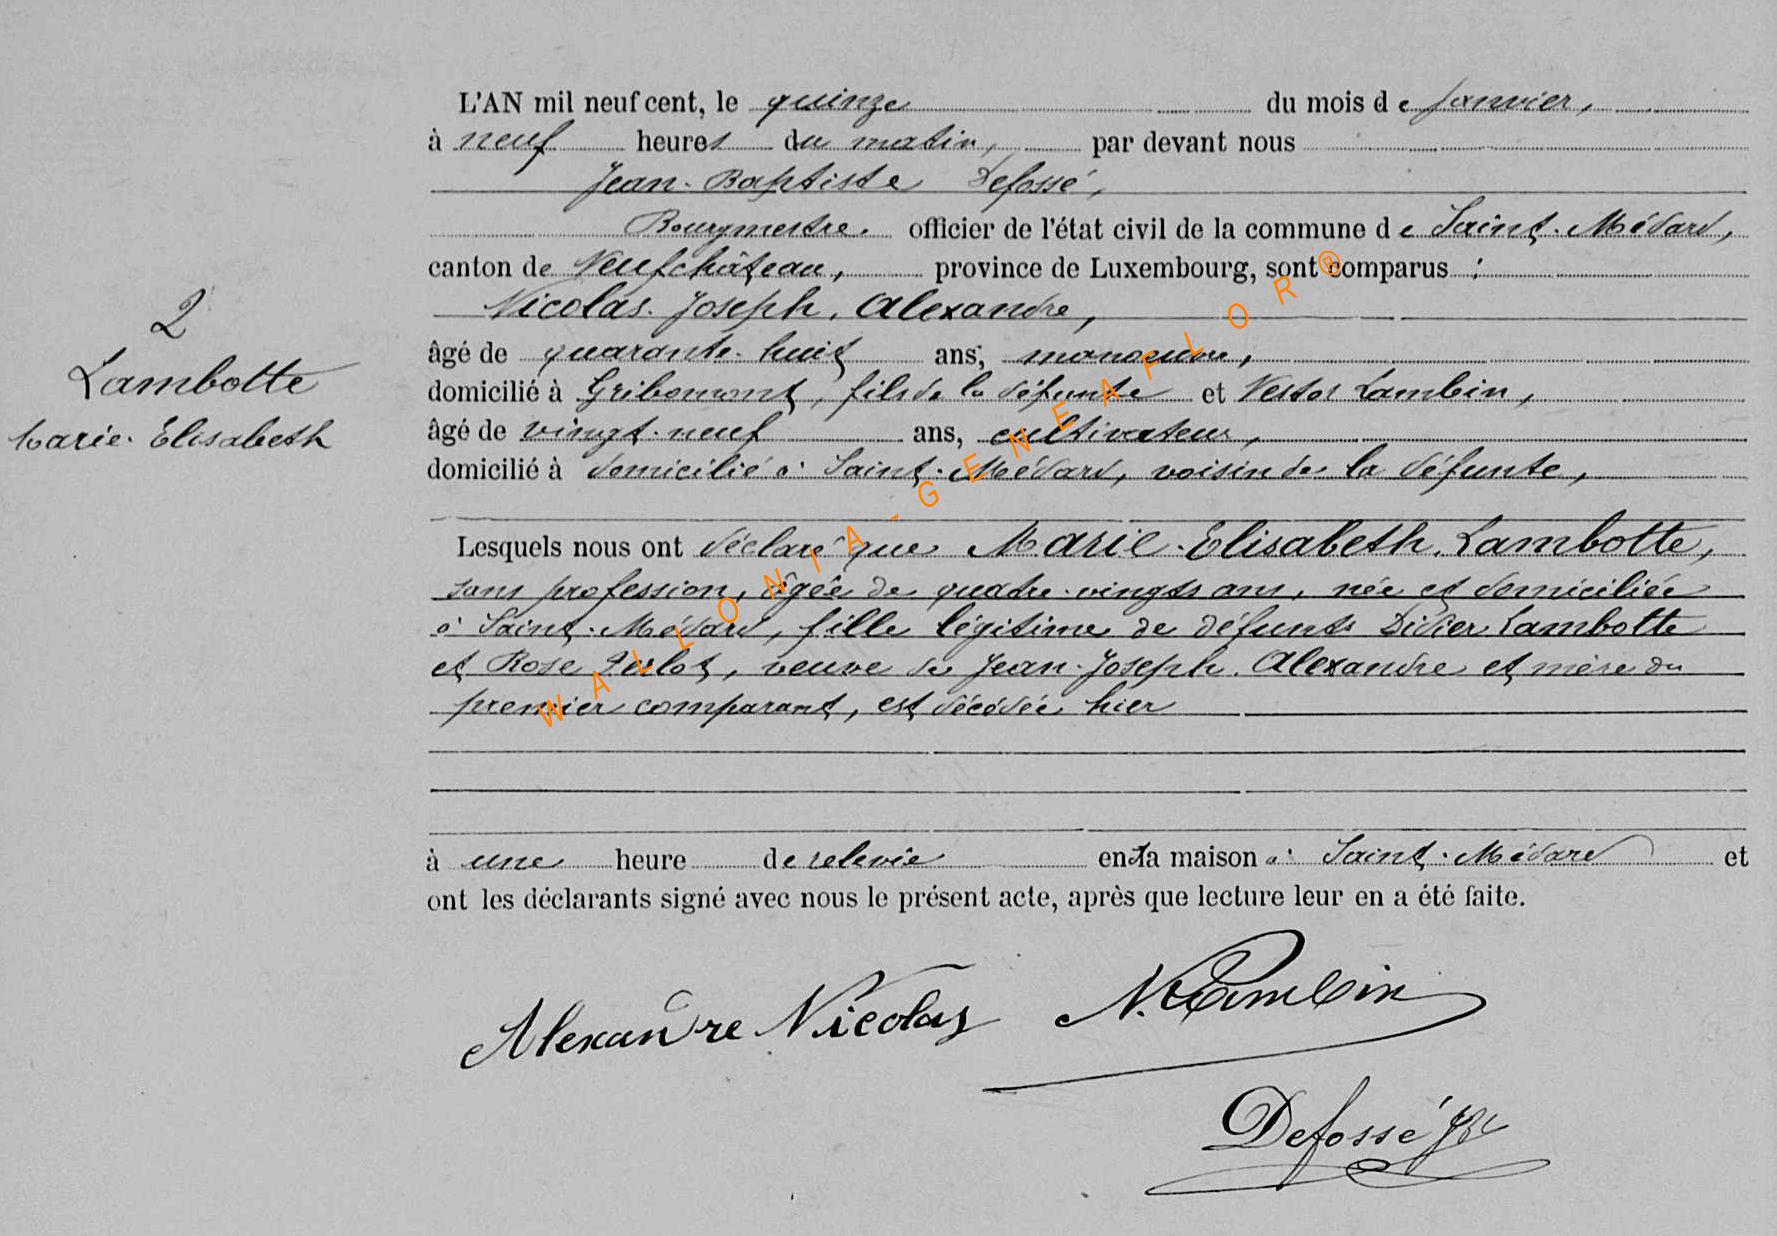 L'AN mil neuf cent, le quinze du mois de janvier,
à neuf heures du matin, par devant nous
Jean-Baptiste Defossé,
Bourgmestre. officier de l'état civil de la commune de Saint-Médard,
canton de Neufchâteau, province de Luxembourg, sont comparus :
Nicolas-Joseph. Alexandre,
âgé de quarante-huit ans, manoeuvre,
domicilié à Gribomont, fils de la défunte et Nestor Lambin,
âgé de vingt-neuf ans, cultivateur,
domicilié à domicilié à Saint-Médard, voisin de la défunte,
2
Lambotte
Marie-Elisabeth
Lesquels nous ont déclaré que Marie-Elisabeth. Lambotte,
sans profession, âgée de quatre-vingts ans, née et domiciliée
à Saint-Médard, fille légitime de défunts Didier Lambotte
et Rose, veuve de Jean-Joseph. Alexandre et mère du
premier comparant, est décédée hier
à une heure de relevée en la maison à Saint-Médard et
ont les déclarants signé avec nous le présent acte, après que lecture leur en a été faite.
Alexandre Nicolas N. Lambin
Defossé JB
WALLONIA-GENEAFLOR®